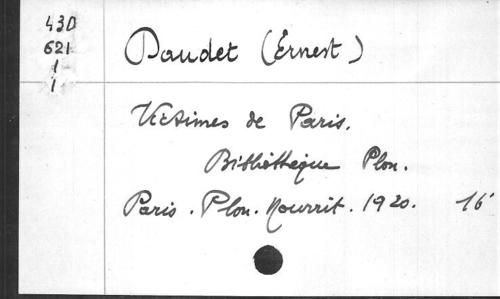 430
621
1
1
Daudet (Ernest)
Victimes de Paris.
Bibliothèque Plon.
Paris. Plon. Nourrit. 1920. 16°